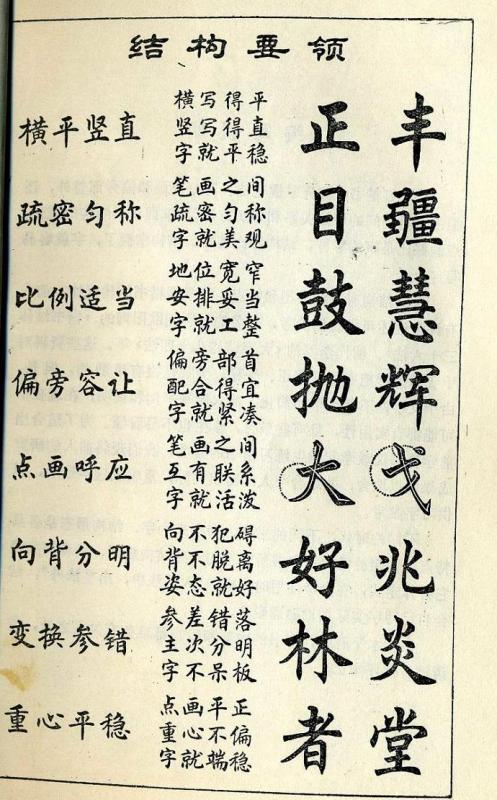 结构要领
横平竖直
横写得平
竖写得直
字就平稳
正 丰
疏密匀称
笔画之间
疏密匀称
字就美观
目 疆
比例适当
地位宽窄
安排妥当
字就工整
鼓 慧
偏旁容让
偏旁部首
配合得宜
字就紧凑
抛 辉
点画呼应
笔画之间
互有联系
字就活泼
大 戈
向背分明
向不犯碍
背不脱离
姿态就好
好 兆
变换参错
参差错落
主次分明
字不呆板
林 炎
重心平稳
点画平正
重心不偏
字就端稳
者 堂